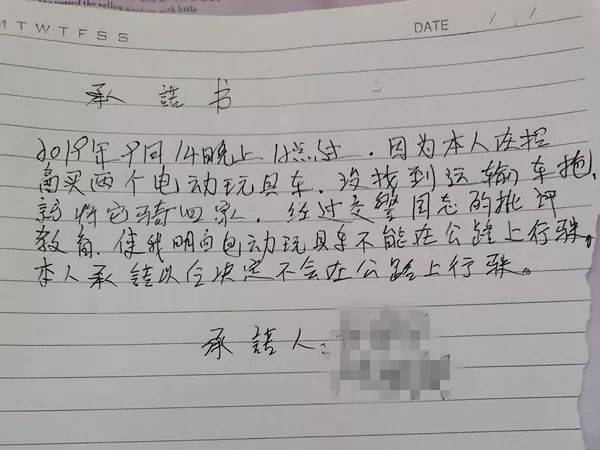 passed the with little
M T W T F S S DATE / /
承諾书
2019年9月14晚上12点过,因为本人在
买两个电动玩具车,没找到运输车拖,
就将它骑回家,经过交警同志的批评
教育,使我明白电动玩具车不能在公路上行驶。
本人承諾以后决定不会在公路上行驶。
承諾人: